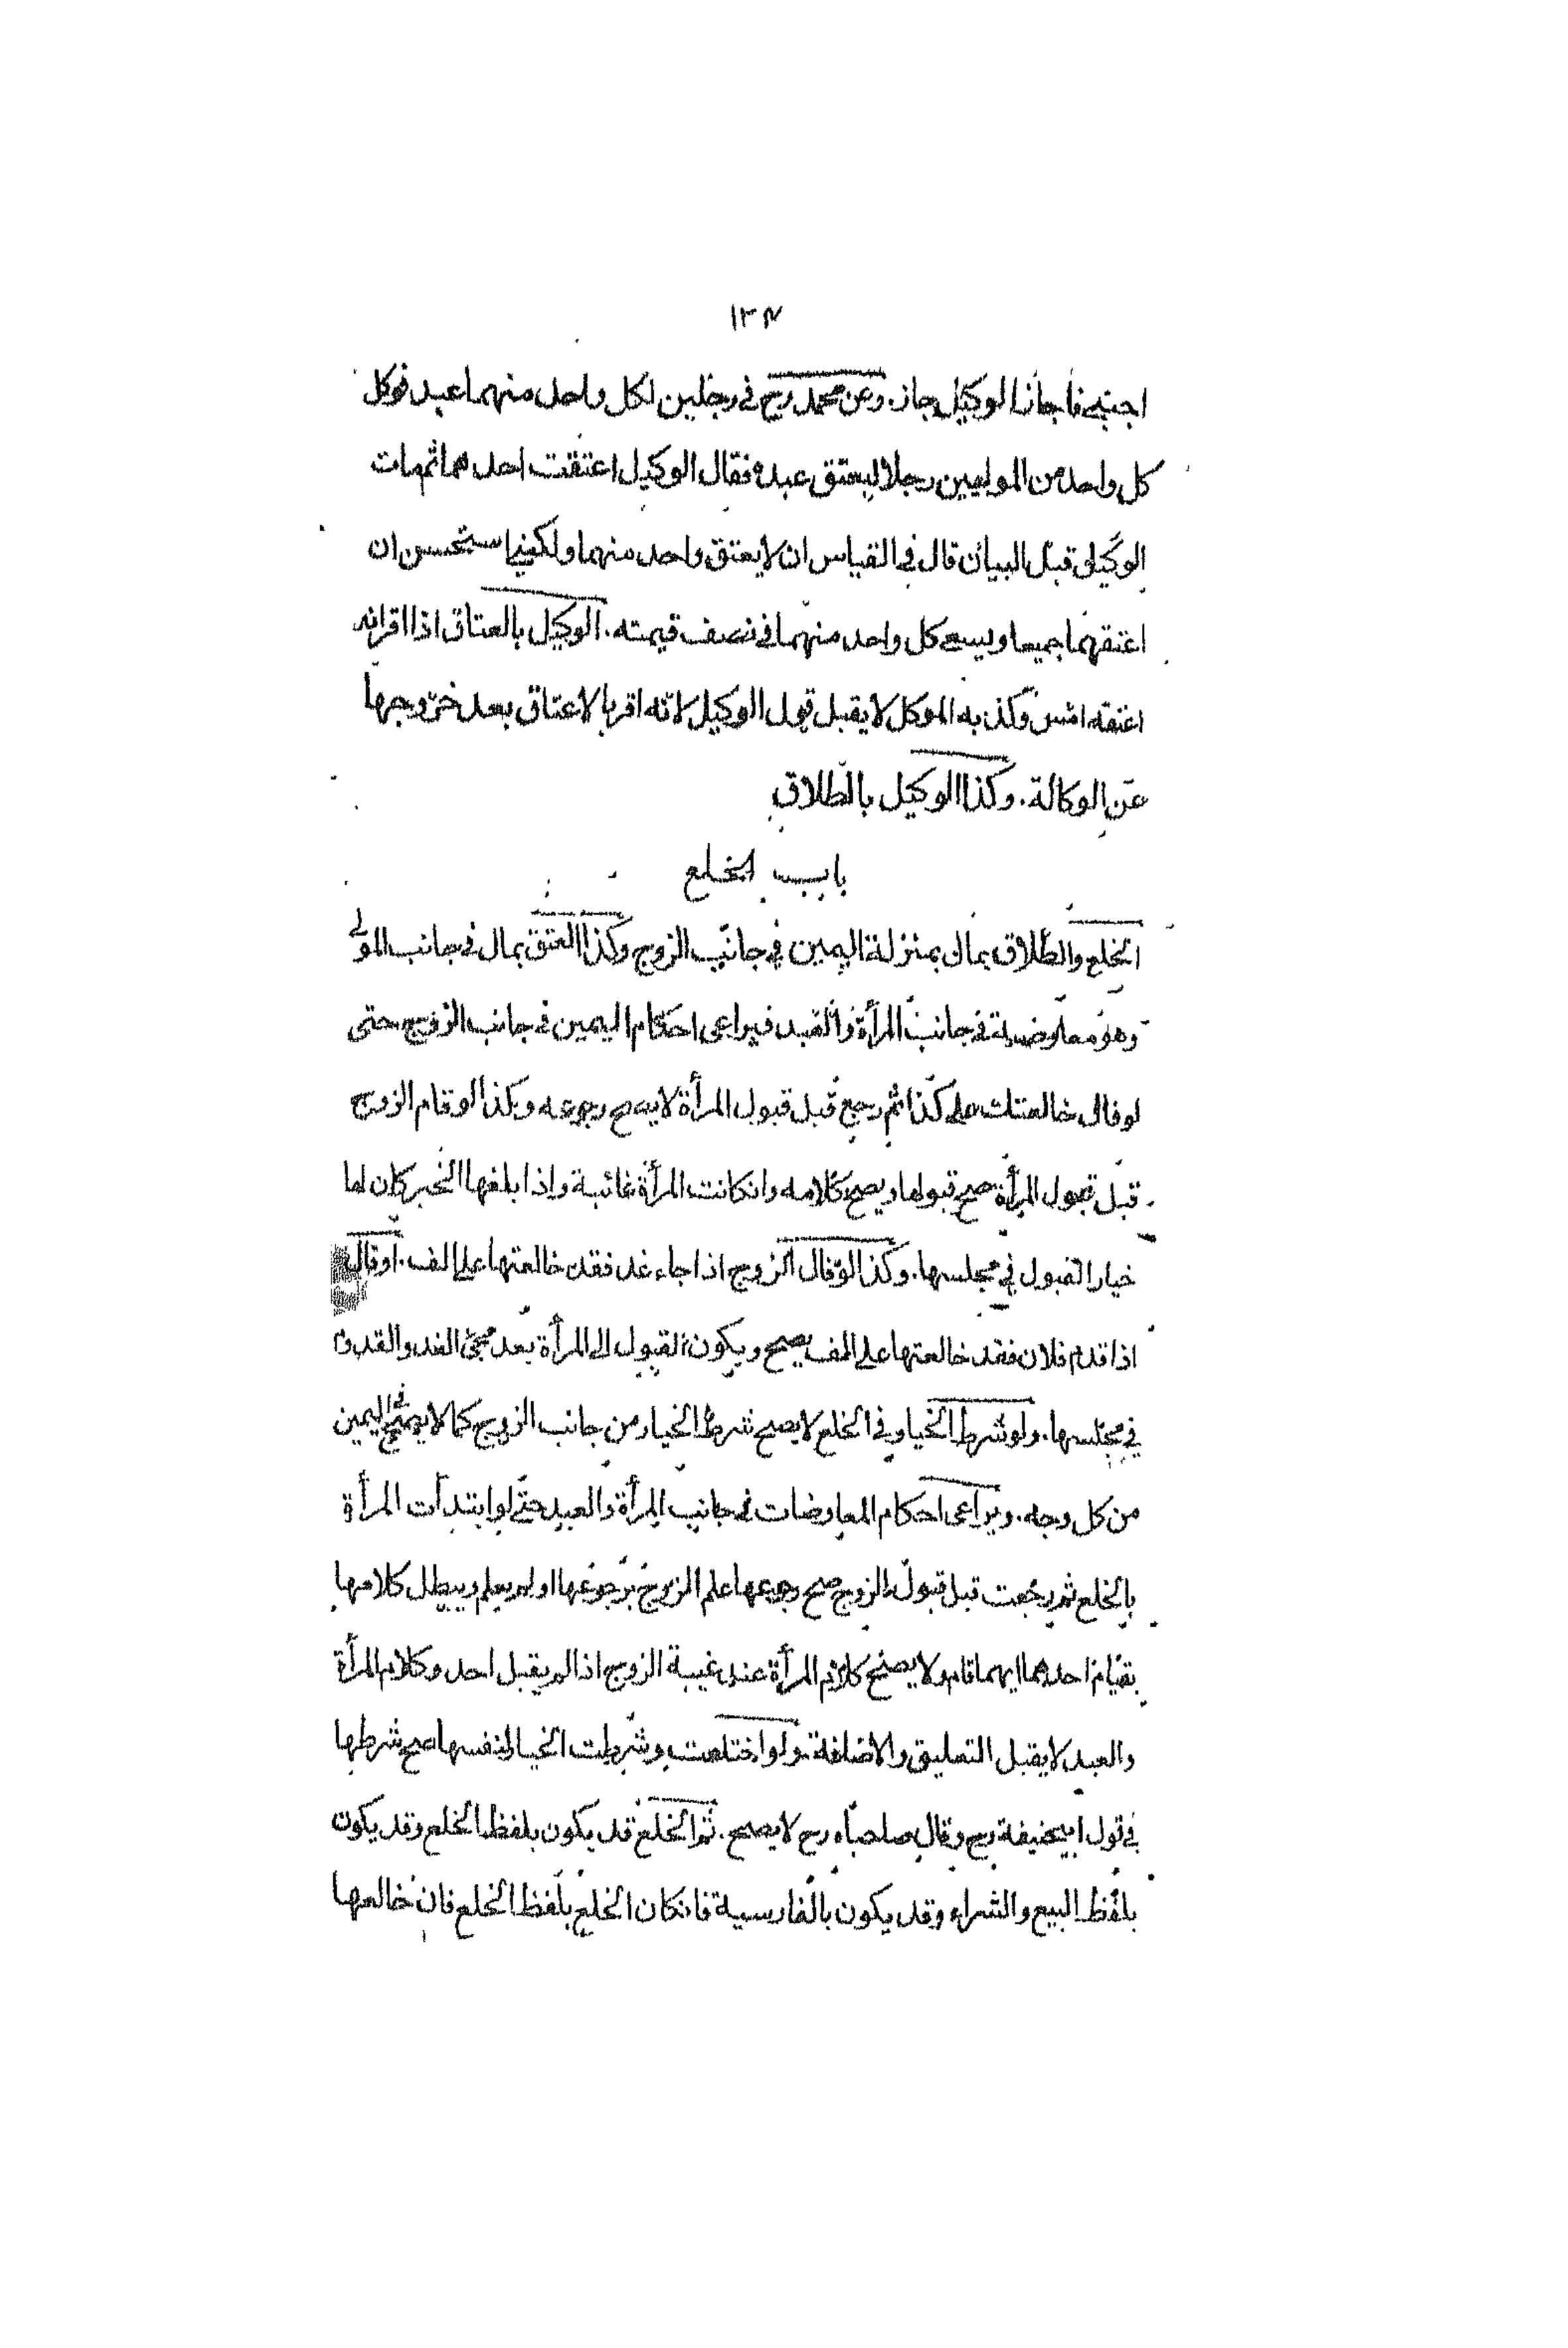 ١٣٤
اجنبي فاجاز الوكيل جاز. وعن محمد رح في رجلين لكل واحد منهما عبد فوكل
كل واحد من الموليين رجلا ليعتق عبده فقال الوكيل اعتقت احدهما ثم مات
الوكيل قبل البيان قال في القياس ان لا يعتق واحد منهما ولكني استحسن ان
اعتقهما جميعا ويسعى كل واحد منهما في نصف قيمته. الوكيل بالعتاق اذا اقر انه
اعتقه امس وكذبه الموكل لا يقبل قول الوكيل لانه اقر بالاعتاق بعد خروجها
عن الوكالة. وكذا الوكيل بالطلاق
باب الخلع
الخلع والطلاق بمال بمنزلة اليمين في جانب الزوج وكذا العتق بمال في جانب المولى
وهو معاوضة في جانب المرأة والعبد فيراعى احكام اليمين في جانب الزوج حتى
لو قال خالعتك على كذا ثم رجع قبل قبول المرأة لا يصح رجوعه وكذا لو قام الزوج
قبل قبول المرأة صح قبولها ويصح كلامه وانكانت المرأة غائبة واذا بلغها الخبر كان لها
خيار القبول في مجلسها. وكذا لو قال الزوج اذا جاء غد فقد خالعتها على الف. او قال
اذا قدم فلان فقد خالعتها على الف يصح ويكون القبول الى المرأة بعد مجئ الغد والقدوم
في مجلسها. ولو شرط الخيار في الخلع لا يصح شرط الخيار من جانب الزوج كما لا يصح في اليمين
من كل وجه. ويراعى احكام المعاوضات في جانب المرأة والعبد حتى لو ابتدأت المرأة
بالخلع ثم رجعت قبل قبول الزوج صح رجوعها علم الزوج برجوعها او لم يعلم ويبطل كلامها
بقيام احدهما ايهما قام ولا يصح كلام المرأة عند غيبة الزوج اذا لم يقبل احد وكلام المرأة
والعبد لا يقبل التعليق والاضافة. ولو اختلعت وشرطت الخيار لنفسها صح شرطها
في قول ابيحنيفة رح وقال صاحباه رح لا يصح. ثم الخلع قد يكون بلفظ الخلع وقد يكون
بلفظ البيع والشراء وقد يكون بالفارسية فانكان الخلع بلفظ الخلع فان خالعها